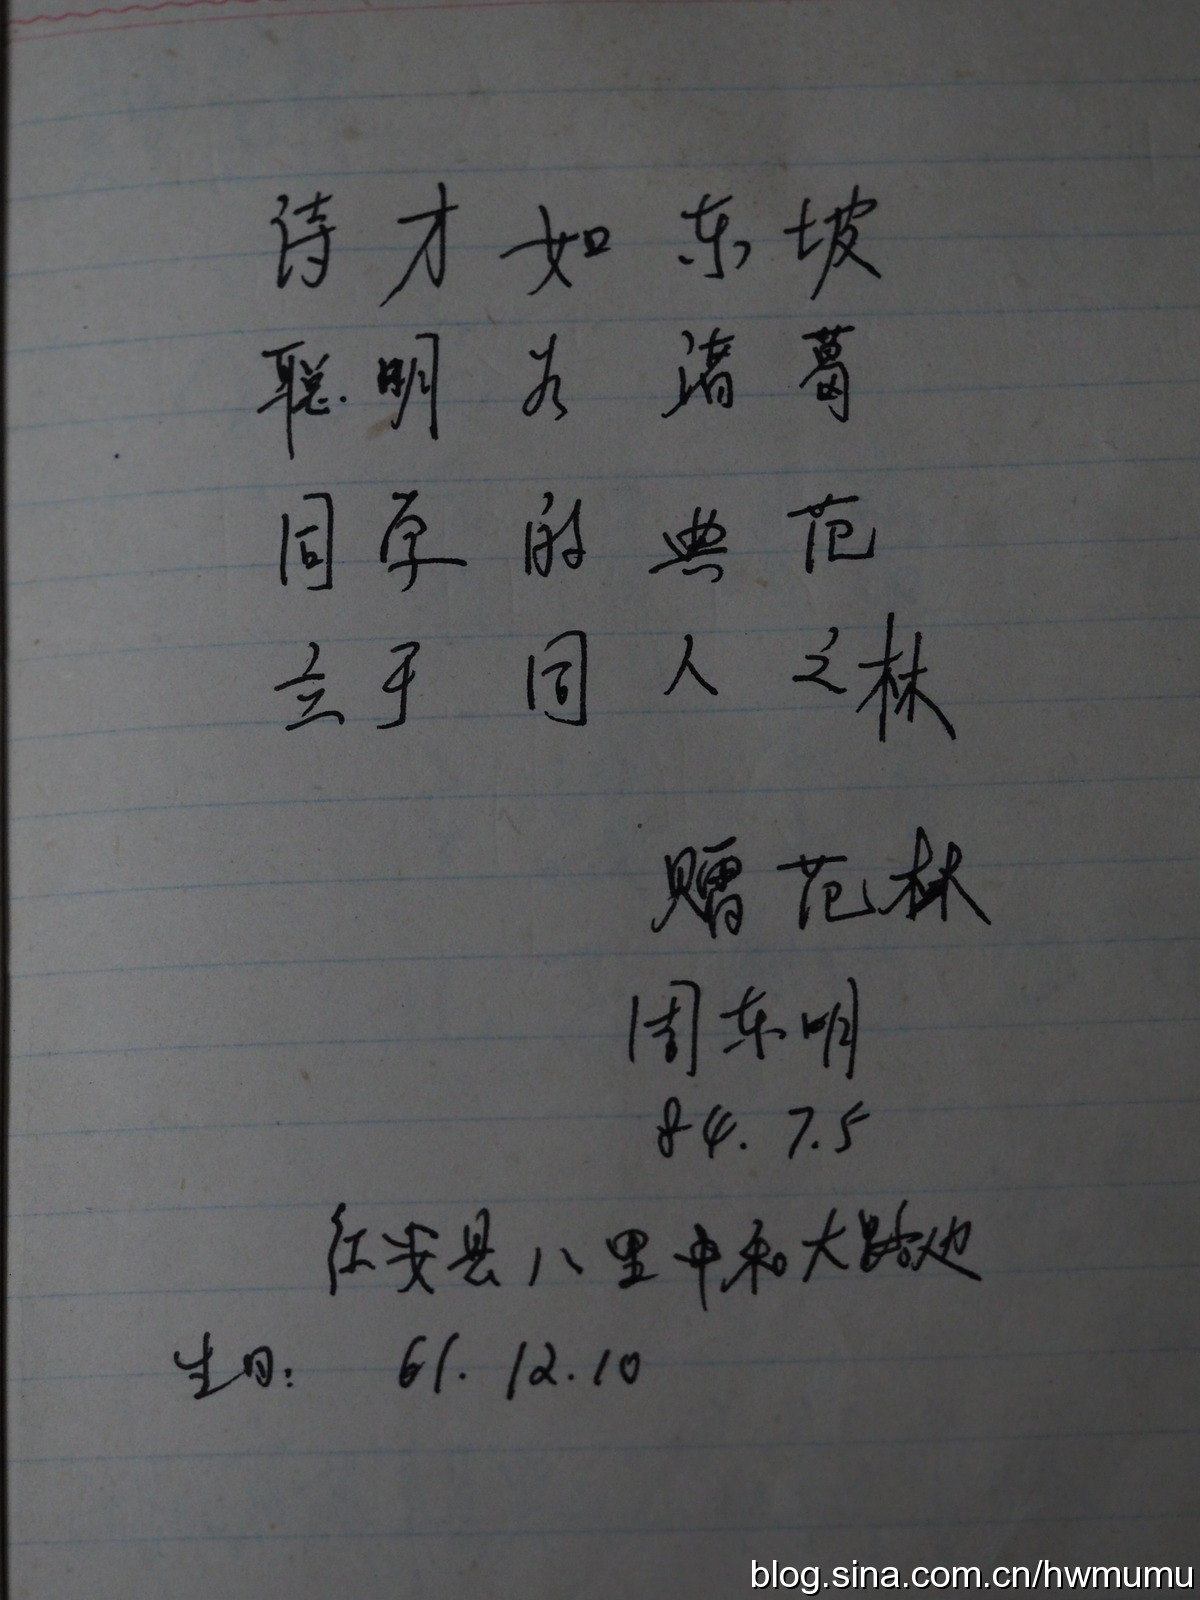 诗才如东坡
聪明若诸葛
同桌的典范
立于同人之林
赠范林
周东明
84.7.5
红安县八里中和大路边
生日: 61.12.10
blog.sina.com.cn/hwmumu